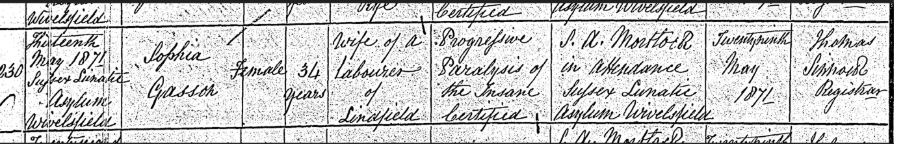 Wivelsfield
Wife
Certified
Asylum Wivelsfield
230
Thirteenth
May 1871
Sussex Lunatic
Asylum
Wivelsfield
Sophia
Gasson
Female
34
years
Wife of a
Labourer
of
Lindfield
Progressive
Paralysis of
the Insane
Certified
S. A.
in attendance
Sussex Lunatic
Asylum Wivelsfield
Twentyninth
May
1871
Thomas
Registrar
S. A.
Twentyninth